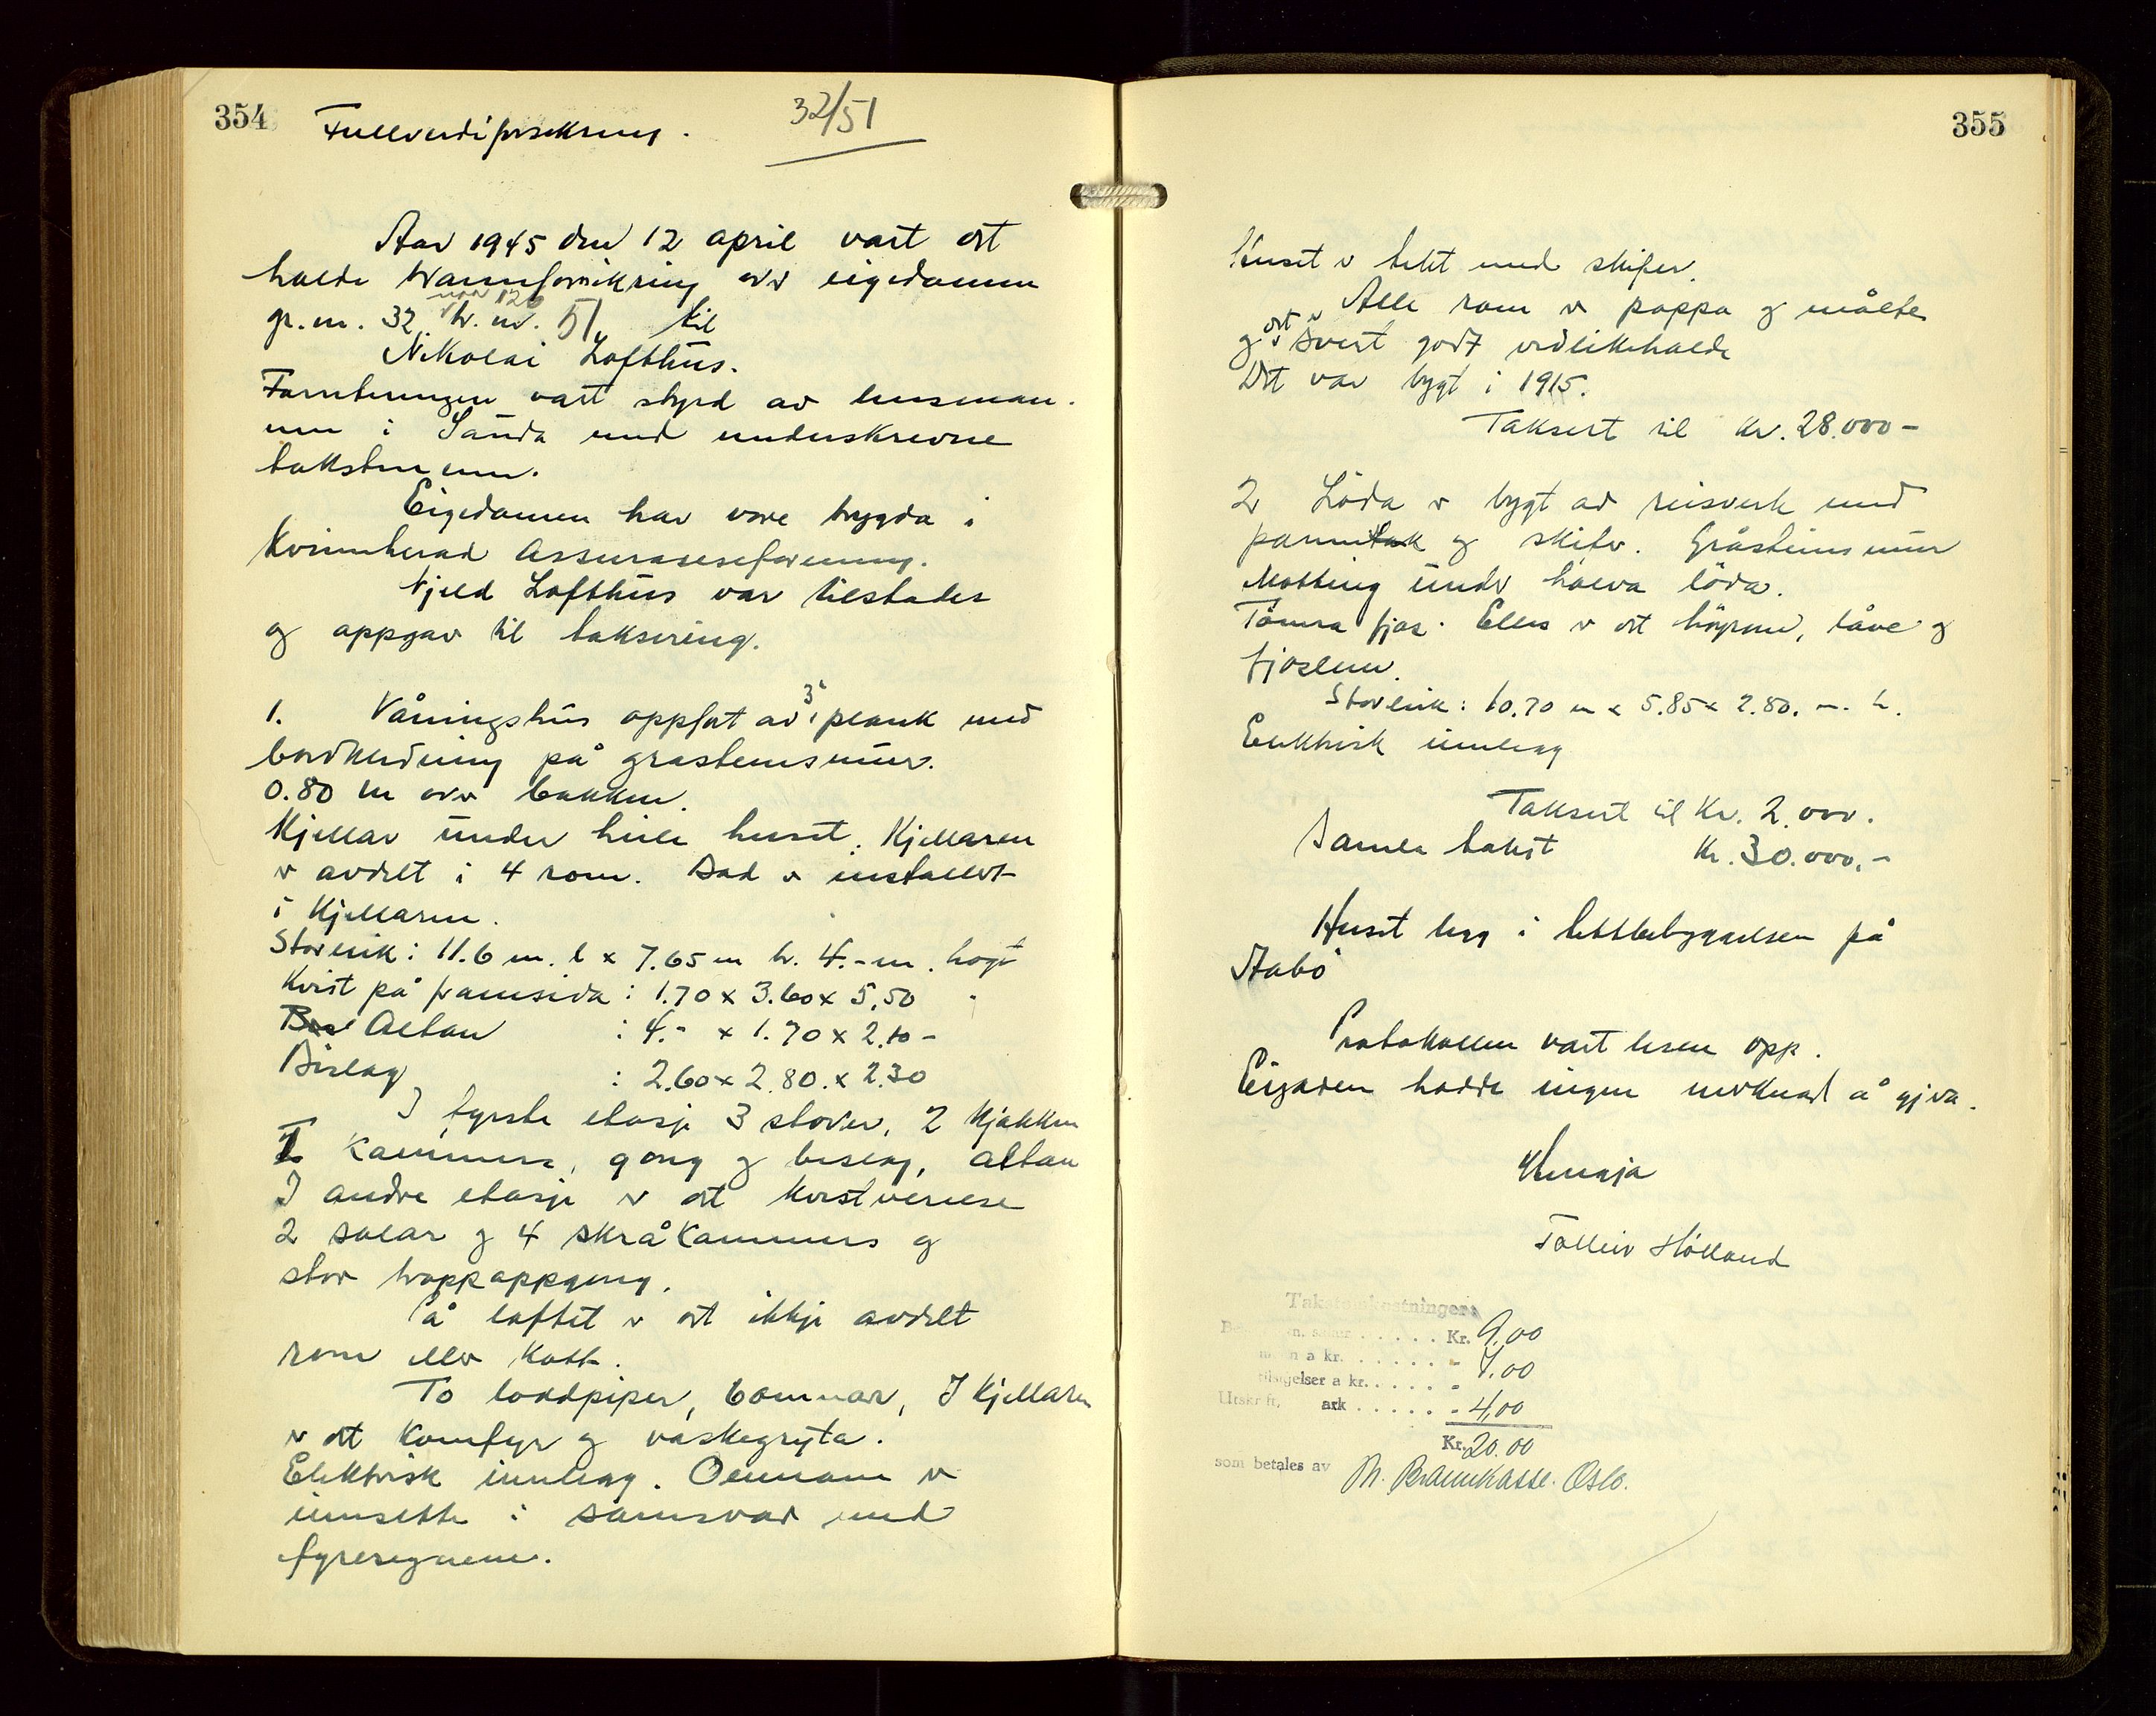 354
Fullverdiforsikring.
32/51
Aar 1945 den 12 april vart det
halde brannforsikring over eigedomen
gr.nr. 32, br. nr. 51, til
Nikolai Lofthus.
Forretningen vart styrd av lensman-
nen i Sanda med underskrevne
takstmenn.
Eigedomen har vore trygda i
Kvinnherad Assuranseforening.
Njeld Lofthus var tilstades
og oppgav til taksering.
1. Våningshus oppført av 3" plank med
bordkledning på grasteinsmur.
0.80 m over bakken.
Kjellar under heile huset. Kjellaren
er avdelt i 4 rom. Bad er installert
i Kjellaren.
Storleik: 11.6 m. l x 7.65 m br. 4.- m. høgt
Kvist på framsida: 1.70 x 3.60 x 5.50
Altan : 4.- x 1.70 x 2.10 -
Bislag : 2.60 x 2.80. x 2.30
I fyrste etasje 3 stover, 2 Kjøkken
Kammers, gong og bislag, altan
I andre etasje er det kvistverelse
2 salar og 4 skråkammers og
stor trappoppgong.
På loftet er det ikkje avdelt
rom eller kott.
To brandpiper, 6 omnar, I Kjellaren
er det komfyr og vaskegryta.
Elektrisk innlegg. Omnane er
innsette i samsvar med
fyresegnene.
355
Huset er tekt med skifer.
Alle rom er pappa og målte
og det er svert godt vedlikehalde
Det var bygt i 1915.
Taksert til Kr. 28.000-
2 Löda er bygt av reisverk med
panntak og skifer. Gråsteinsmur
Møkking under halva löda.
Tömra fjos. Elles er det höyrom, låve og
fjoslem.
Storleik: 10.70 m x 5.85 x 2.80. m. h.
Elektrisk innlegg
Taksert til Kr. 2.000.
Samla takst Kr. 30.000,-
Huset ligg i tettbebyggelsen på
Aabö
Protokollen vart lesen opp.
Eigaren hadde ingen merknad å gjeva.
Tolleiv Hölland
Takstomkostninger:
Kr. 9.00
a kr. . . . . . . - 7.00
a kr. . . . . . -
Utskrift, ark . . . . . . - 4,00
Kr. 20.00
som betales av N. Brannkasse. Oslo.